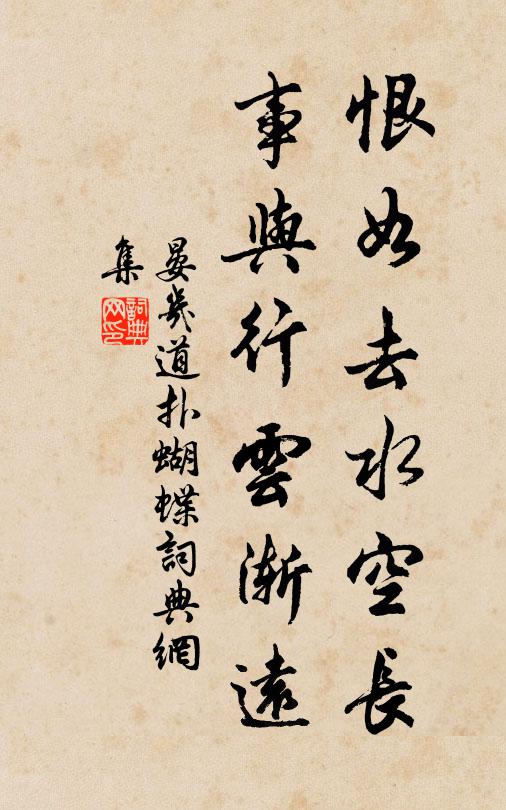 恨如去水空長
事與行雲漸遠
晏幾道扑蝴蝶詞典網
集
詞典网印